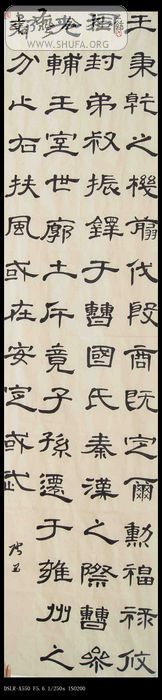 WWW.SHUFA.ORG
王秉乾之機翦伐殷商既定爾勳福祿攸
同封弟叔振鐸于曹國氏秦漢之際曹參
夾輔王室世廓土斥竟子孫遷于雍州之
郊分止右扶風或在安定或武
DSLR-A550 F5.6 1/250s ISO200